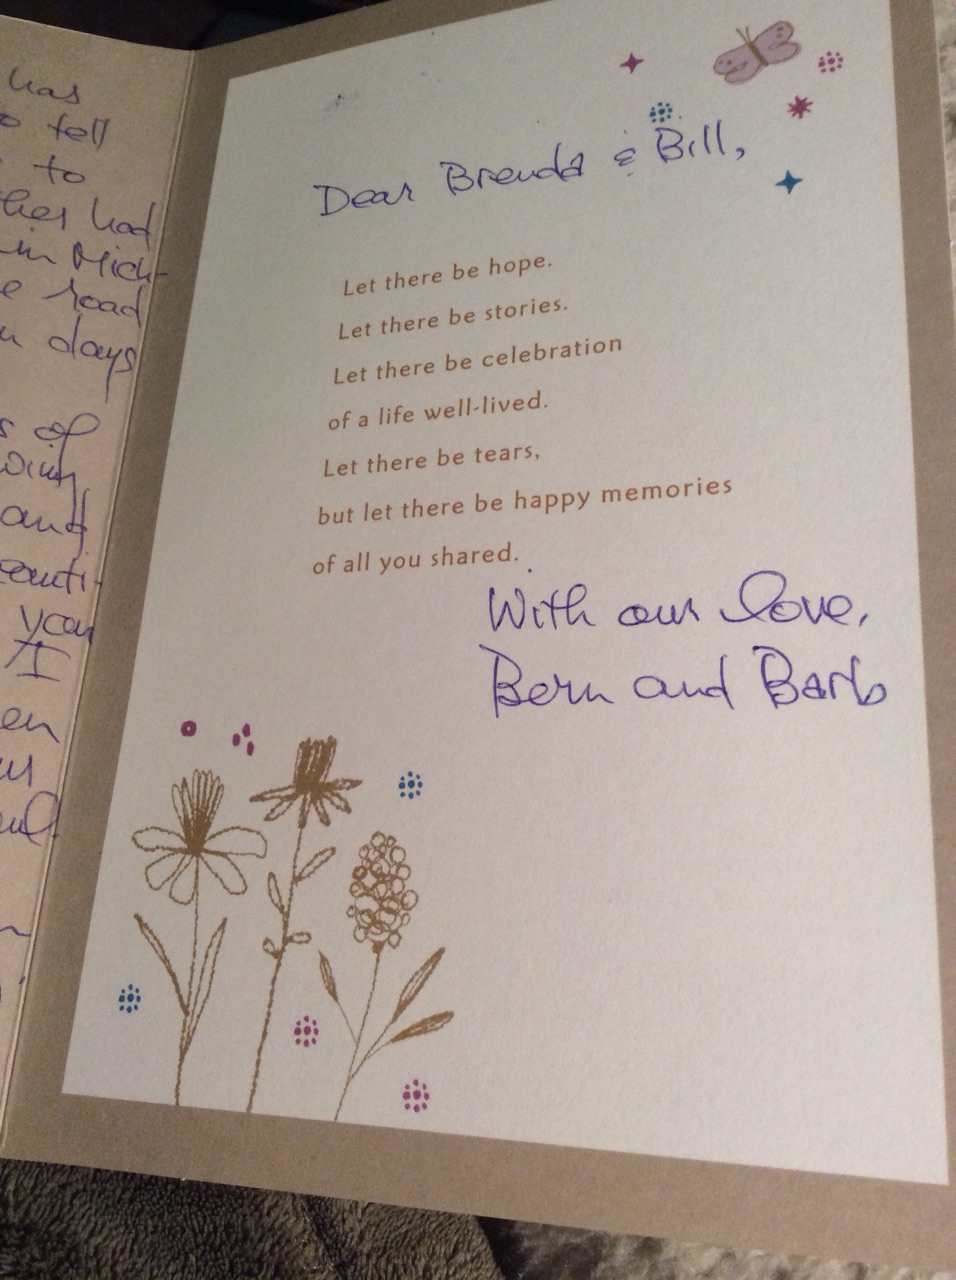 has
to tell
to
had
in Mich-
road
days
of
and
you
I
Dear Brenda & Bill,
Let there be hope.
Let there be stories.
Let there be celebration
of a life well-lived.
Let there be tears,
but let there be happy memories
of all you shared.
With our love,
Bern and Barb